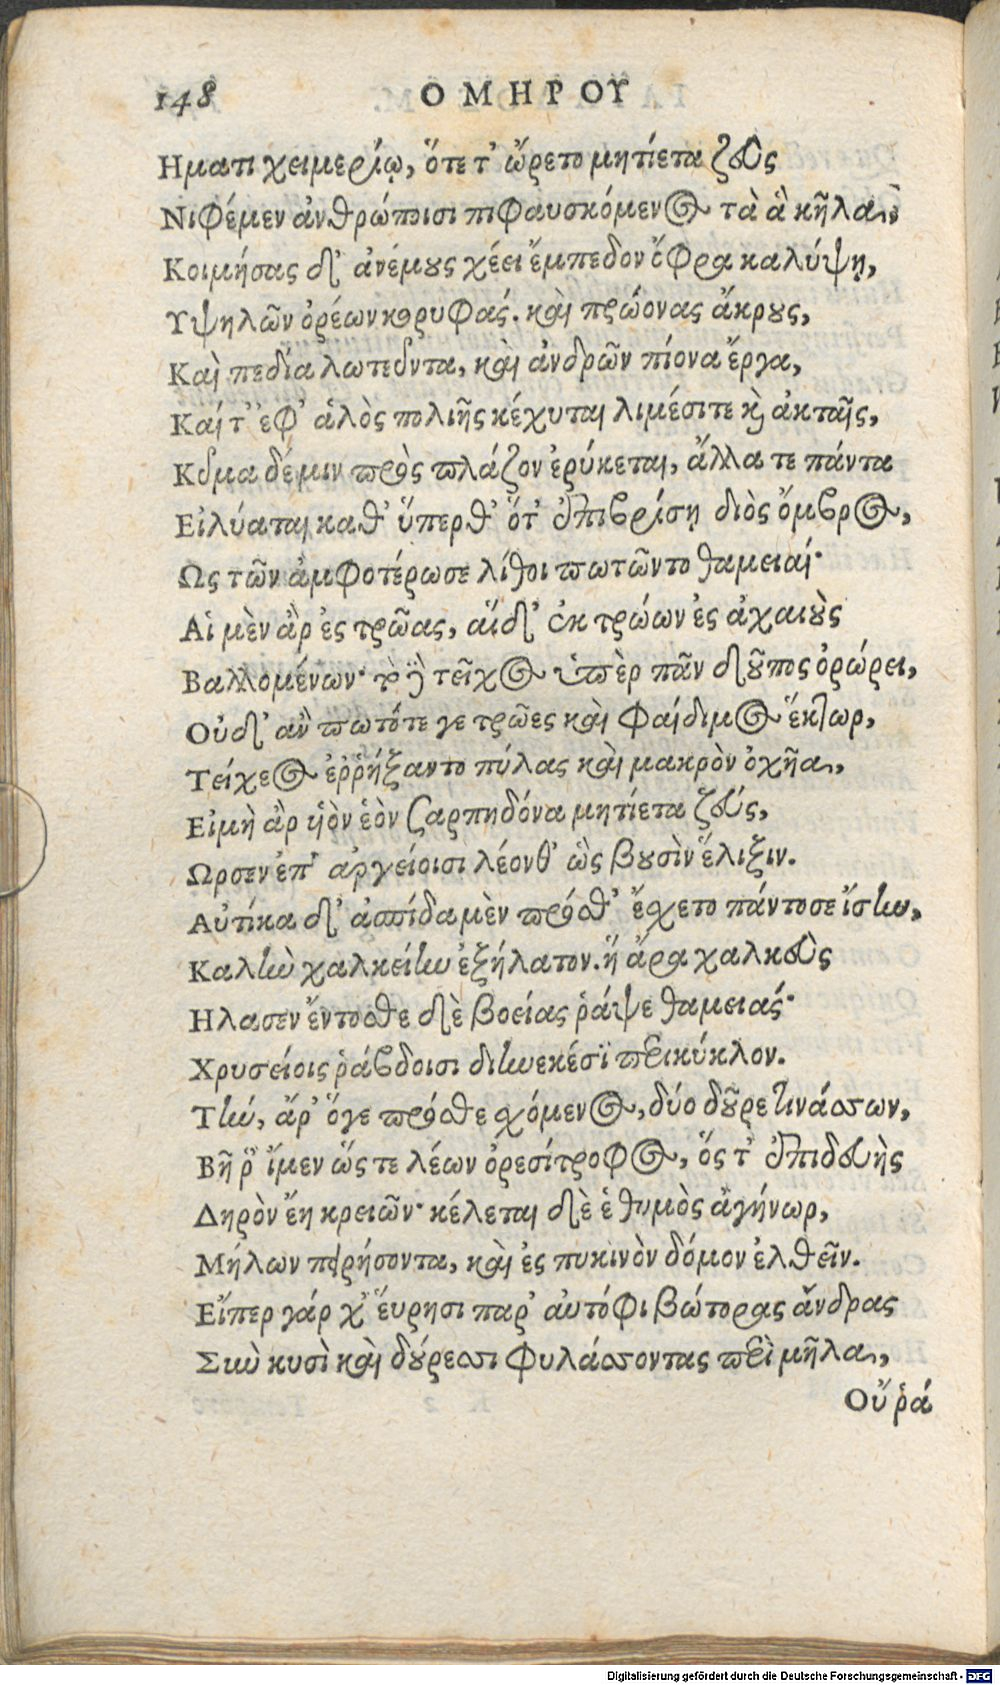 148 ΟΜΗΡΟΥ
Ηματι χειμερίῳ, ὅτε τ' ὤρετο μητίετα ζεῦς
Νιφέμεν ἀνθρώποισι πιφαυσκόμενος τὰ ἃ κῆλα,
Κοιμήσας δ' ἀνέμους χέει ἔμπεδον ὄφρα καλύψῃ,
Υψηλῶν ὀρέων κορυφάς. καὶ πρώονας ἄκρους,
Καὶ πεδία λωτεῦντα, καὶ ἀνδρῶν πίονα ἔργα,
Καί τ' ἐφ' ἁλὸς πολιῆς κέχυται λιμέσι τε καὶ ἀκταῖς,
Κῦμα δέ μιν πρὸς πλάζον ἐρύκεται, ἄλλα τε πάντα
Εἰλύαται καθ' ὕπερθ' ὅτ' ἐπιβρίσῃ διὸς ὄμβρος,
Ως τῶν ἀμφοτέρωσε λίθοι πωτῶντο θαμειαί·
Αἱ μὲν ἂρ ἐς τρῶας, αἵ δ' ἐκ τρώων ἐς ἀχαιοὺς
Βαλλομένων· τὸ δὲ τεῖχος ὑπὲρ πᾶν δοῦπος ὀρώρει,
Οὐδ' ἂν πωτότε γε τρῶες καὶ φαίδιμος ἕκτωρ,
Τείχεος ἐῤῥήξαντο πύλας καὶ μακρὸν ὀχῆα,
Εἰ μὴ ἂρ υἱὸν ἑὸν Σαρπηδόνα μητίετα ζεύς,
Ωρσεν ἐπ' ἀργείοισι λέονθ' ὣς βουσὶν ἕλιξιν.
Αὐτίκα δ' ἀσπίδα μὲν πρόσθ' ἔσχετο πάντοσε ἴσην,
Καλὴν χαλκείην ἐξήλατον. ἣ ἄρα χαλκεὺς
Ηλασεν ἔντοσθε δὲ βοείας ῥάψε θαμειάς·
Χρυσείοις ῥάβδοισι διηνεκέσϊ περικύκλον.
Τήν, ἄρ' ὅγε πρόσθε σχόμενος, δύο δοῦρε τινάσσων,
Βῆ ῥ' ἴμεν ὥς τε λέων ὀρεσίτροφος, ὅς τ' ἐπιδευὴς
Δηρὸν ἔῃ κρειῶν· κέλεται δὲ ἑ θυμὸς ἀγήνωρ,
Μήλων πειρήσοντα, καὶ ἐς πυκινὸν δόμον ἐλθεῖν.
Εἴπερ γάρ χ' ἕυρησι παρ' αὐτόφι βώτορας ἄνδρας
Σὺν κυσὶ καὶ δούρεσσι φυλάσσοντας περὶ μῆλα,
Οὔ ῥά
Digitalisierung gefördert durch die Deutsche Forschungsgemeinschaft - DFG